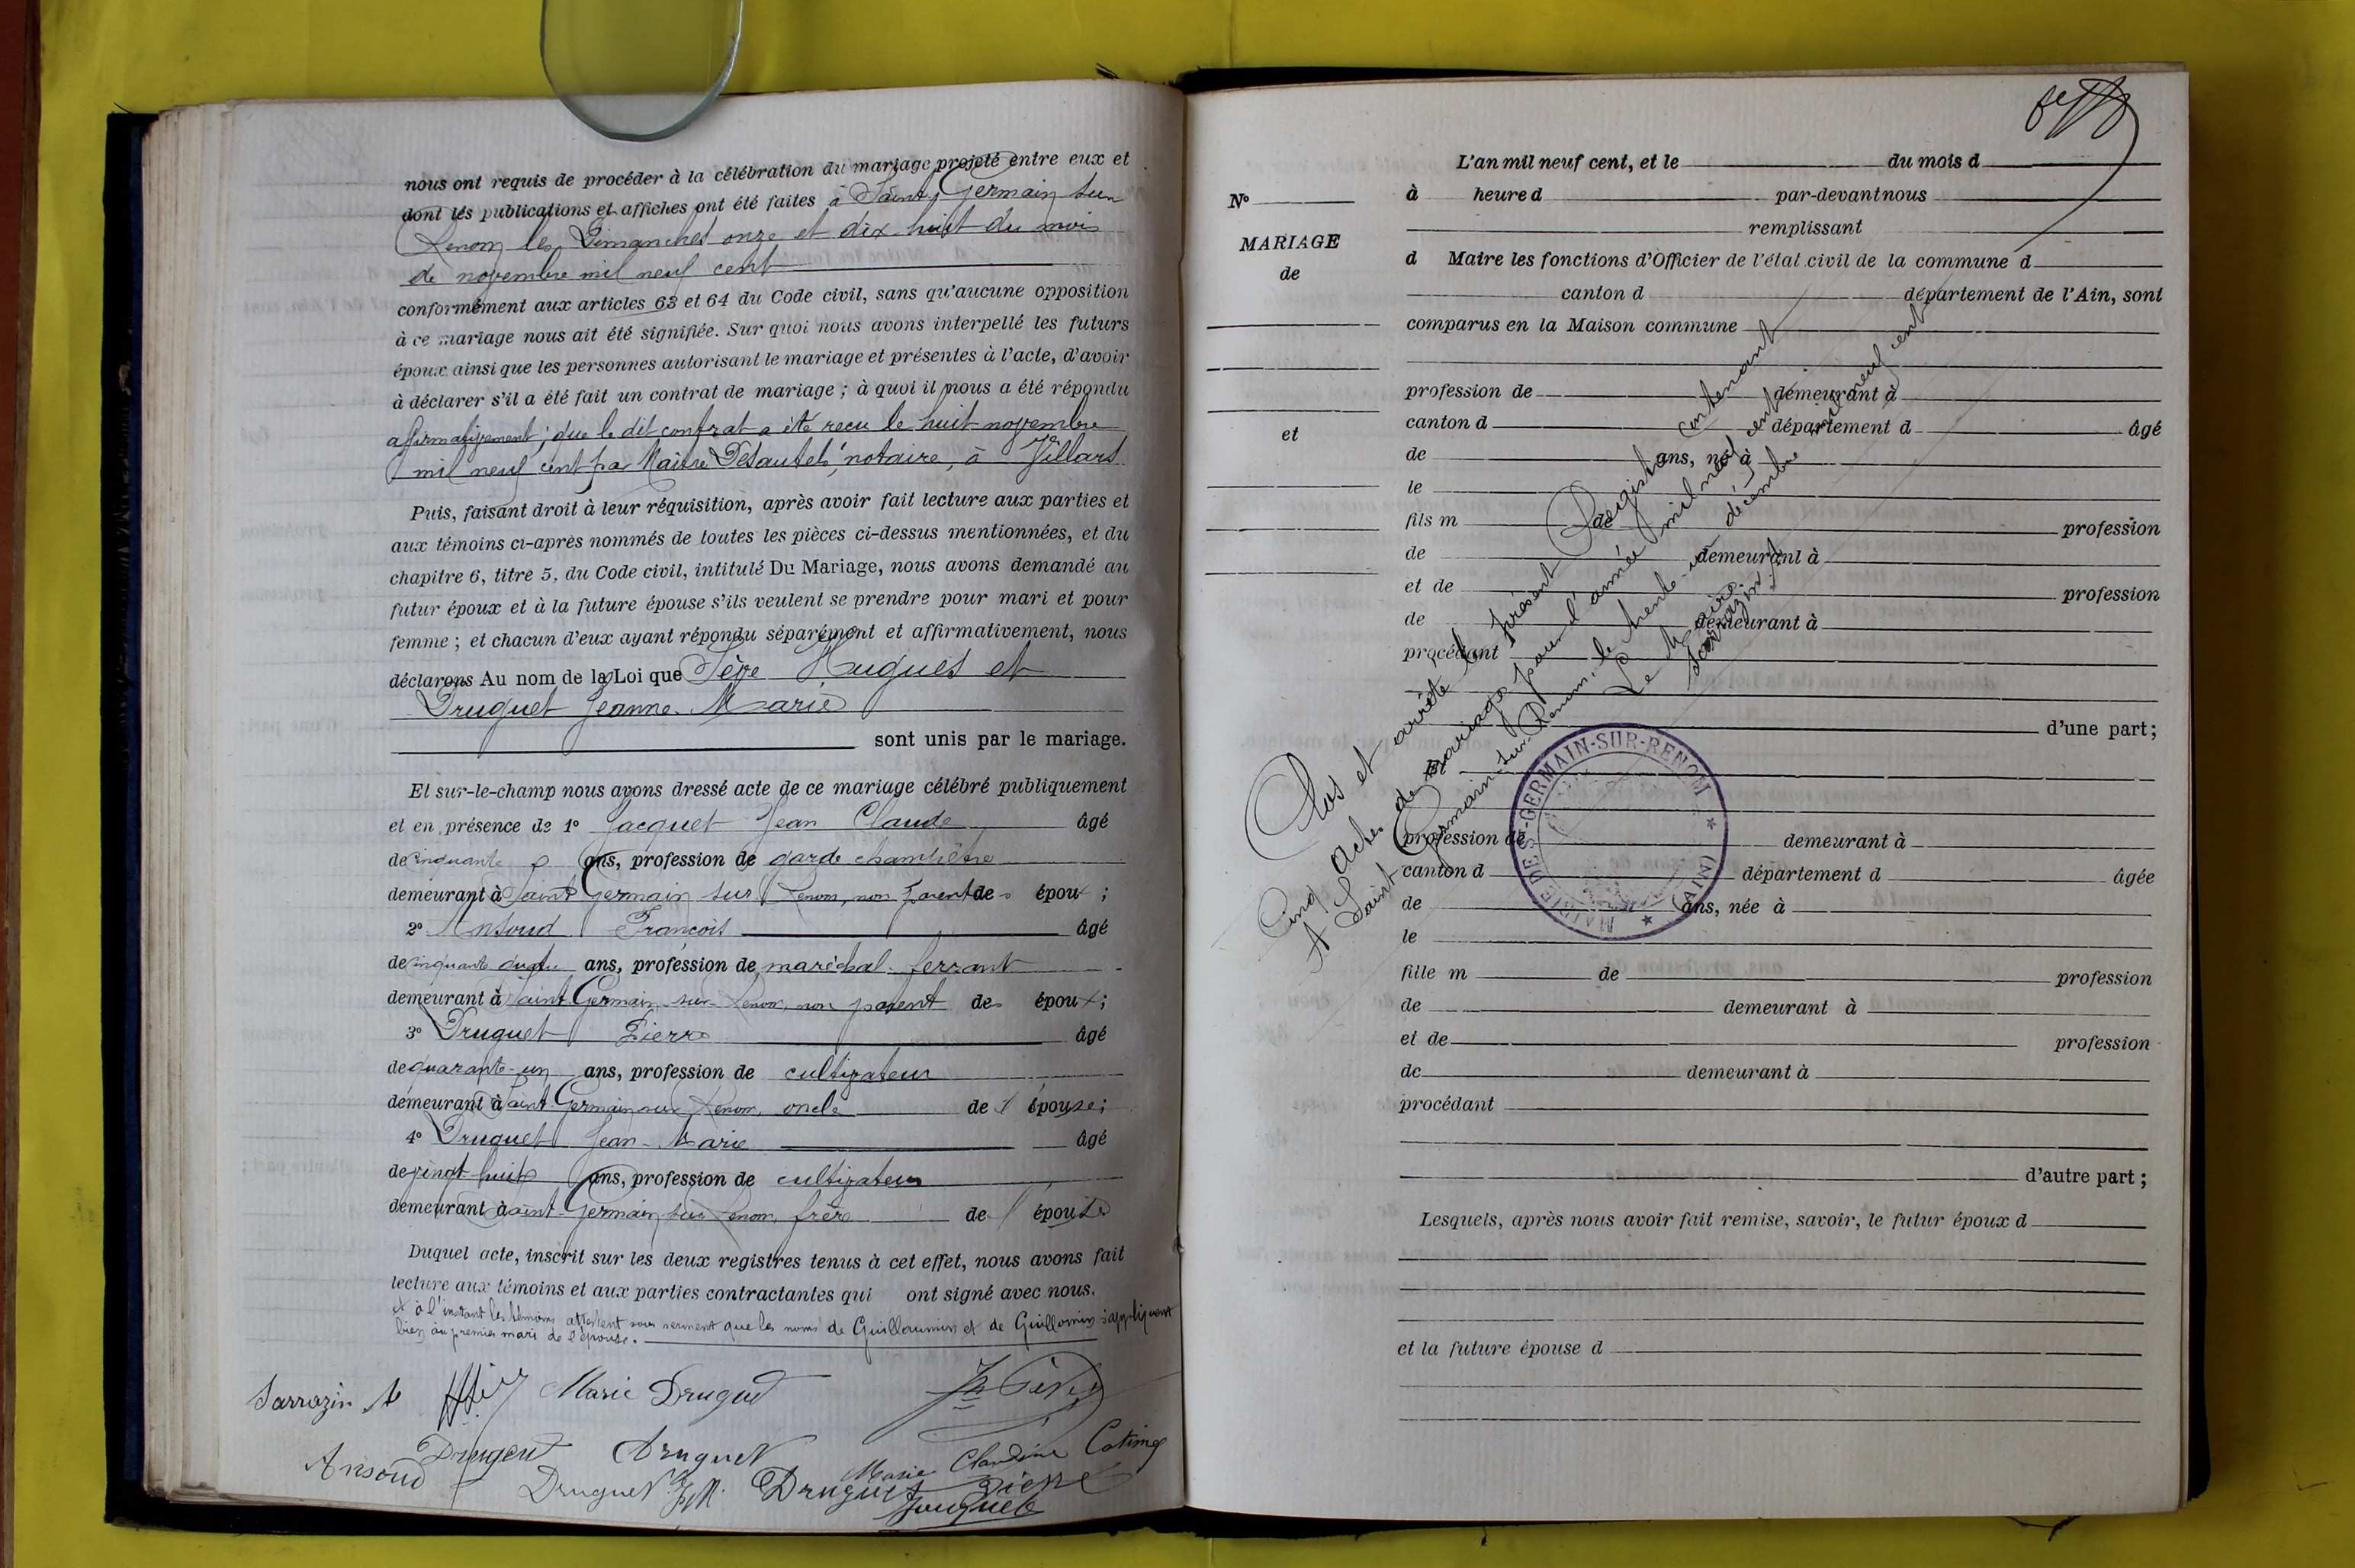 nous ont requis de procéder à la célébration du mariage projeté entre eux et
dont les publications et affiches ont été faites à Saint Germain sur
Renom les Dimanches onze et dix huit du mois
de novembre mil neuf cent
conformément aux articles 63 et 64 du Code civil, sans qu'aucune opposition
à ce mariage nous ait été signifiée. Sur quoi nous avons interpellé les futurs
époux ainsi que les personnes autorisant le mariage et présentes à l'acte, d'avoir
à déclarer s'il a été fait un contrat de mariage ; à quoi il nous a été répondu
affirmativement ; que le dit contrat a été recu le huit novembre
mil neuf cent par Maître Desautels, notaire, à Villars
Puis, faisant droit à leur réquisition, après avoir fait lecture aux parties et
aux témoins ci-après nommés de toutes les pièces ci-dessus mentionnées, et du
chapitre 6, titre 5, du Code civil, intitulé Du Mariage, nous avons demandé au
futur époux et à la future épouse s'ils veulent se prendre pour mari et pour
femme ; et chacun d'eux ayant répondu séparément et affirmativement, nous
déclarons Au nom de la Loi que Sève Hugues et
Druguet Jeanne Marie
sont unis par le mariage.
Et sur-le-champ nous avons dressé acte de ce mariage célébré publiquement
et en présence de 1° Jacquet Jean Claude âgé
de cinquante ans, profession de garde champêtre
demeurant à Saint Germain sur Renom, non parent des époux ;
2° Ansoud François âgé
de cinquante quatre ans, profession de maréchal-ferrant
demeurant à Saint Germain sur Renom, non parent des époux ;
3° Druguet Pierre âgé
de quarante-un ans, profession de cultivateur
demeurant à Saint Germain sur Renom, oncle de l' épouse ;
4° Druguet Jean-Marie âgé
de vingt huit ans, profession de cultivateur
demeurant à Saint Germain sur Renom, frère de l' épouse
Duquel acte, inscrit sur les deux registres tenus à cet effet, nous avons fait
lecture aux témoins et aux parties contractantes qui ont signé avec nous.
et à l'instant les témoins attestent sous serment que les noms de Guillaumin et de Guillomin s'appliquent
bien au premier mari de l'épouse.
Sarrazin Marie Druguet
Ansoud Druguet Druguet Marie Claudine
Druguet J M. Druguet Pierre
Jacquet
L'an mil neuf cent, et le du mois d
N° à heure d par-devant nous
remplissant
MARIAGE
de
et
d Maire les fonctions d'Officier de l'état civil de la commune d
canton d département de l'Ain, sont
comparus en la Maison commune
profession de demeurant à
canton d département d âgé
de ans, né à
le
fils m de profession
de demeurant à
et de profession
de demeurant à
procédant
d'une part ;
Et
profession de demeurant à
canton d département d âgée
de ans, née à
le
fille m de profession
de demeurant à
et de profession
de demeurant à
procédant
d'autre part ;
Lesquels, après nous avoir fait remise, savoir, le futur époux d
et la future épouse d
Clos et arrêté le présent Registre contenant
Cinq actes de mariages pour l'année mil neuf cent
A Saint Germain-sur-Renom, le trente-un décembre mil neuf cent
Le Maire
Sarrazin
MAIRIE DE ST-GERMAIN-SUR-RENOM (AIN)